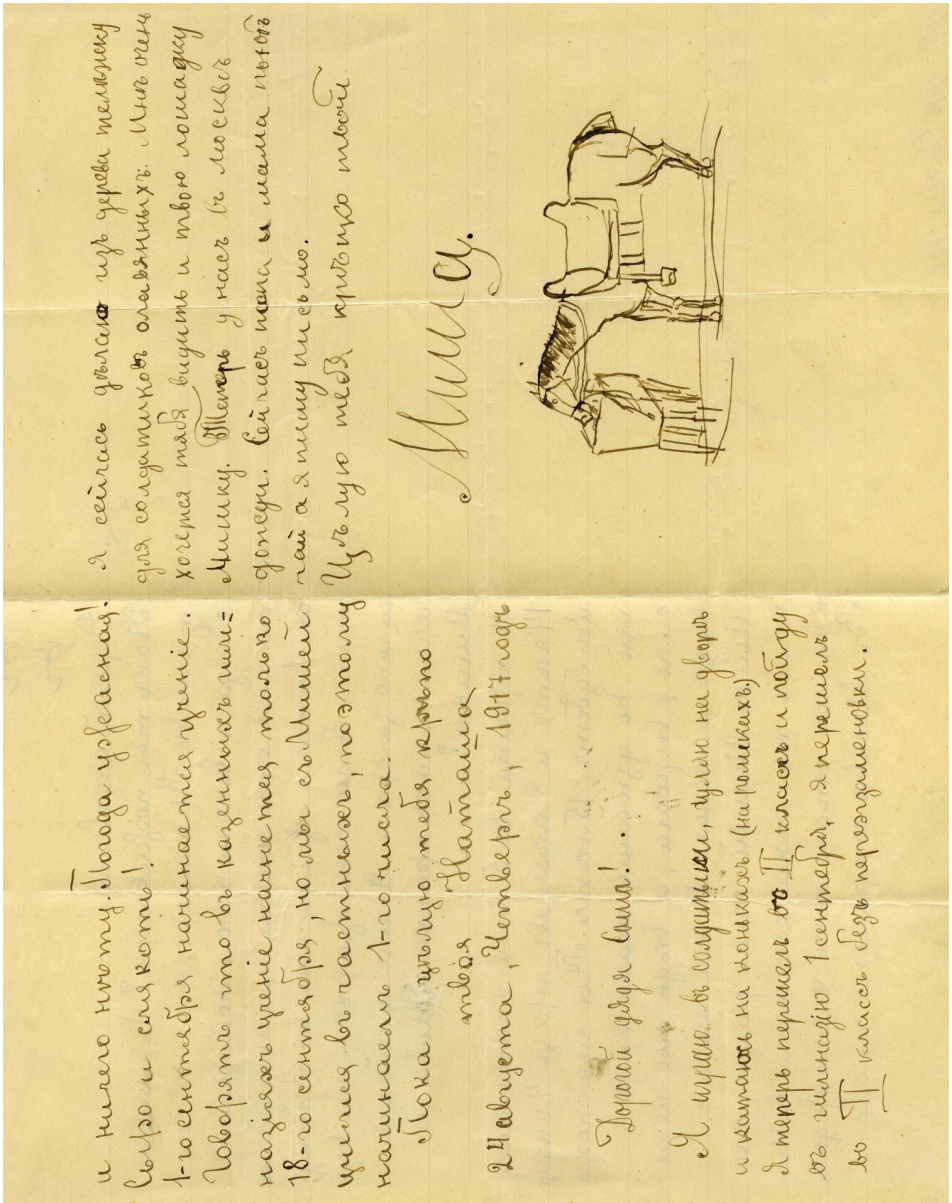 и ничего нѣту. Погода ужасная!
Сыро и слякоть!
1-го сентября начинается ученіе.
Говорятъ что въ казенныхъ гим=
назіяхъ ученіе начнется только
18-го сентября, но мы съ Мишей
учимся въ частныхъ, поэтому
начинаемъ 1-го числа.
Пока цѣлую тебя крѣпко
твоя Наташа
24 августа, Четвергъ, 1917 годъ
Дорогой дядя Саша!
Я играю въ солдатики, гуляю на дворѣ
и катаюсь на конькахъ (на роликахъ.)
Я теперь перешелъ во II классъ и пойду
въ гимназію 1 сентебря, я перешелъ
во II классъ безъ переэкзаменовки.
Я сейчасъ дѣлаю изъ дерева тележку
для солдатиковъ оловянныхъ. Мнѣ очень
хочется тябя видить и твою лошадку
Мишку. Теперь у насъ въ Москвѣ
дожди. Сейчасъ папа и мама пьютъ
чай а я пишу письмо.
Цѣлую тебя крѣпко твой
Миша.